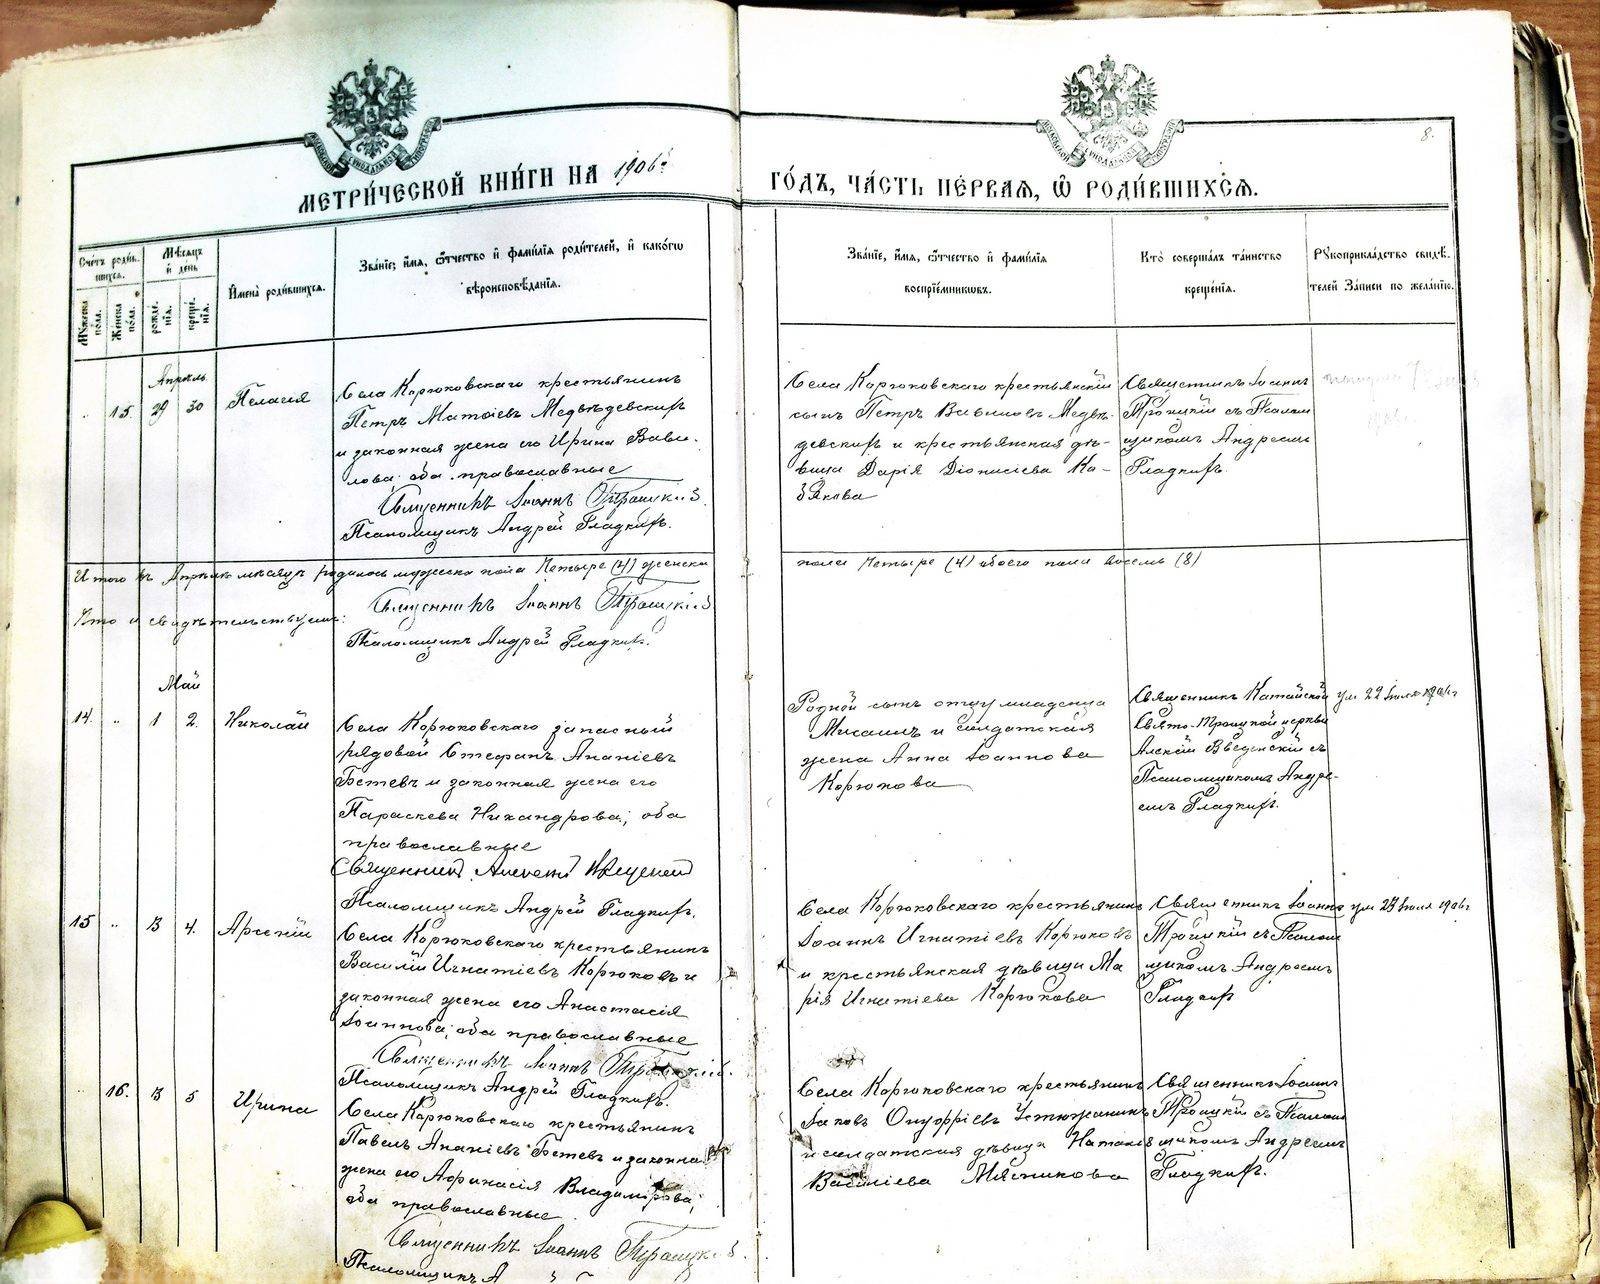 МЕТРИ́ЧЕСКОЙ КНИ́ГИ НА 1906й
ГО́ДЪ, ЧА́СТЬ ПЕ́РВАЯ, Ѡ҃ РОДИ́ВШИХСЯ.
8.
Сче́тъ роди́в-
шихся.
Му́жеска по́ла.
Же́нска по́ла.
Мѣ́сяцъ
и҆ де́нь
рожде́-
нїя.
креще́-
нїя.
И҆мена̀ роди́вшихся.
Зва́нїе, и҆́мя, ѻ҆́тчество и҆ фами́лїя роди́телей, и҆ како́гѡ
вѣроисповѣ́данїя.
Зва́нїе, и҆́мя, ѻ҆́тчество и҆ фами́лїя
воспрїе́мникѡвъ.
Кто̀ соверша́лъ та́инство
креще́нїя.
Рꙋкоприкла́дство свидѣ́-
телей за́писи по жела́нїю.
Апрѣль
15. 29 30 Пелагія
Села Корюковскаго крестьянинъ
Петръ Матѳіевъ Медвѣдевскихъ
и законная жена его Ирина Вави-
лова; оба православные
Священникъ Іоаннъ Троицкій
Псаломщикъ Андрей Гладкихъ.
Села Корюковскаго крестьянскій
сынъ Петръ Вавиловъ Медвѣ-
девскихъ и крестьянская дѣ-
вица Дарія Діонисіева Ко-
зякова
Священникъ Іоаннъ
Троицкій съ Псалом
щикомъ Андреемъ
Гладкихъ.
Итого въ Апрѣлѣ мѣсяцѣ родилось мужеска пола Четыре (4) женска
пола Четыре (4) обоего пола восемь (8)
Что и свидѣтельствуемъ:
Священникъ Іоаннъ Троицкій
Псаломщикъ Андрей Гладкихъ.
Май
14. " 1 2. Николай
Села Корюковскаго запасный
рядовой Стефанъ Ананіевъ
Бетевъ и законная жена его
Параскева Никандрова; оба
православные
Священникъ Алексій Введенскій
Псаломщикъ Андрей Гладкихъ.
Родной сынъ отцу младенца
Мисаилъ и солдатская
жена Анна Іоаннова
Корюкова
Священникъ Катайской
Свято-Троицкой церкви
Алексій Введенскій съ
Псаломщикомъ Андре-
емъ Гладкихъ.
ум 22 Іюля 1906 г
15 " 3 4. Арсеній
Села Корюковскаго крестьянинъ
Василій Игнатіевъ Корюковъ и
законная жена его Анастасія
Іоаннова; оба православные
Священникъ Іоаннъ Троицкій.
Псаломщикъ Андрей Гладкихъ.
Села Корюковскаго крестьянинъ
Іоаннъ Игнатіевъ Корюковъ
и крестьянская дѣвица Ма
рія Игнатіева Корюкова
Священникъ Іоаннъ
Троицкій съ Псалом
щикомъ Андреемъ
Гладкихъ
ум 27 Іюля 1906 г.
16. 3 5 Ирина
Села Корюковскаго крестьянинъ
Павелъ Ананіевъ Бетевъ и законная
жена его Аѳанасія Владимірова;
оба православные.
Священникъ Іоаннъ Троицкій.
Псаломщикъ
Села Корюковскаго крестьянинъ
Іаковъ Онуфріевъ Устюжанинъ
и солдатская дѣвица Наталія
Василіева Мясникова
Священникъ Іоаннъ
Троицкій съ Псалом
щикомъ Андреемъ
Гладкихъ.